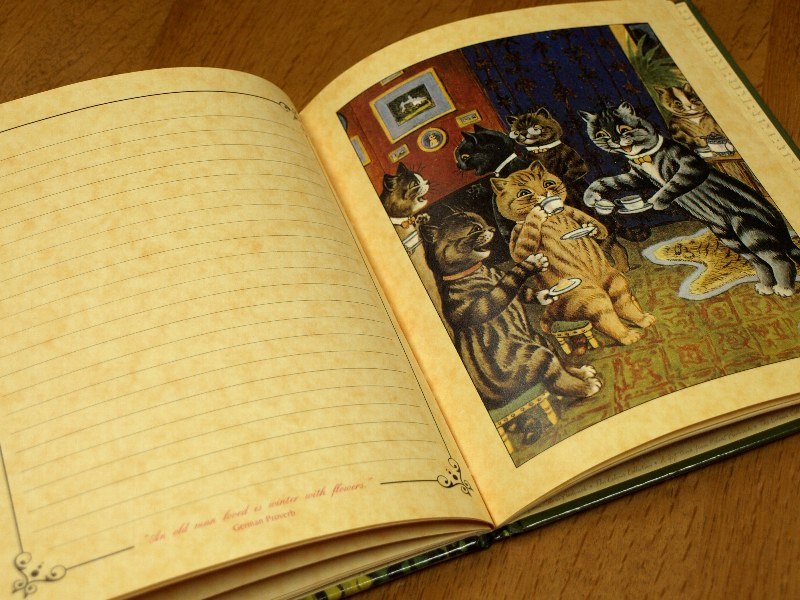 "An old man loved is winter with flowers."
German Proverb